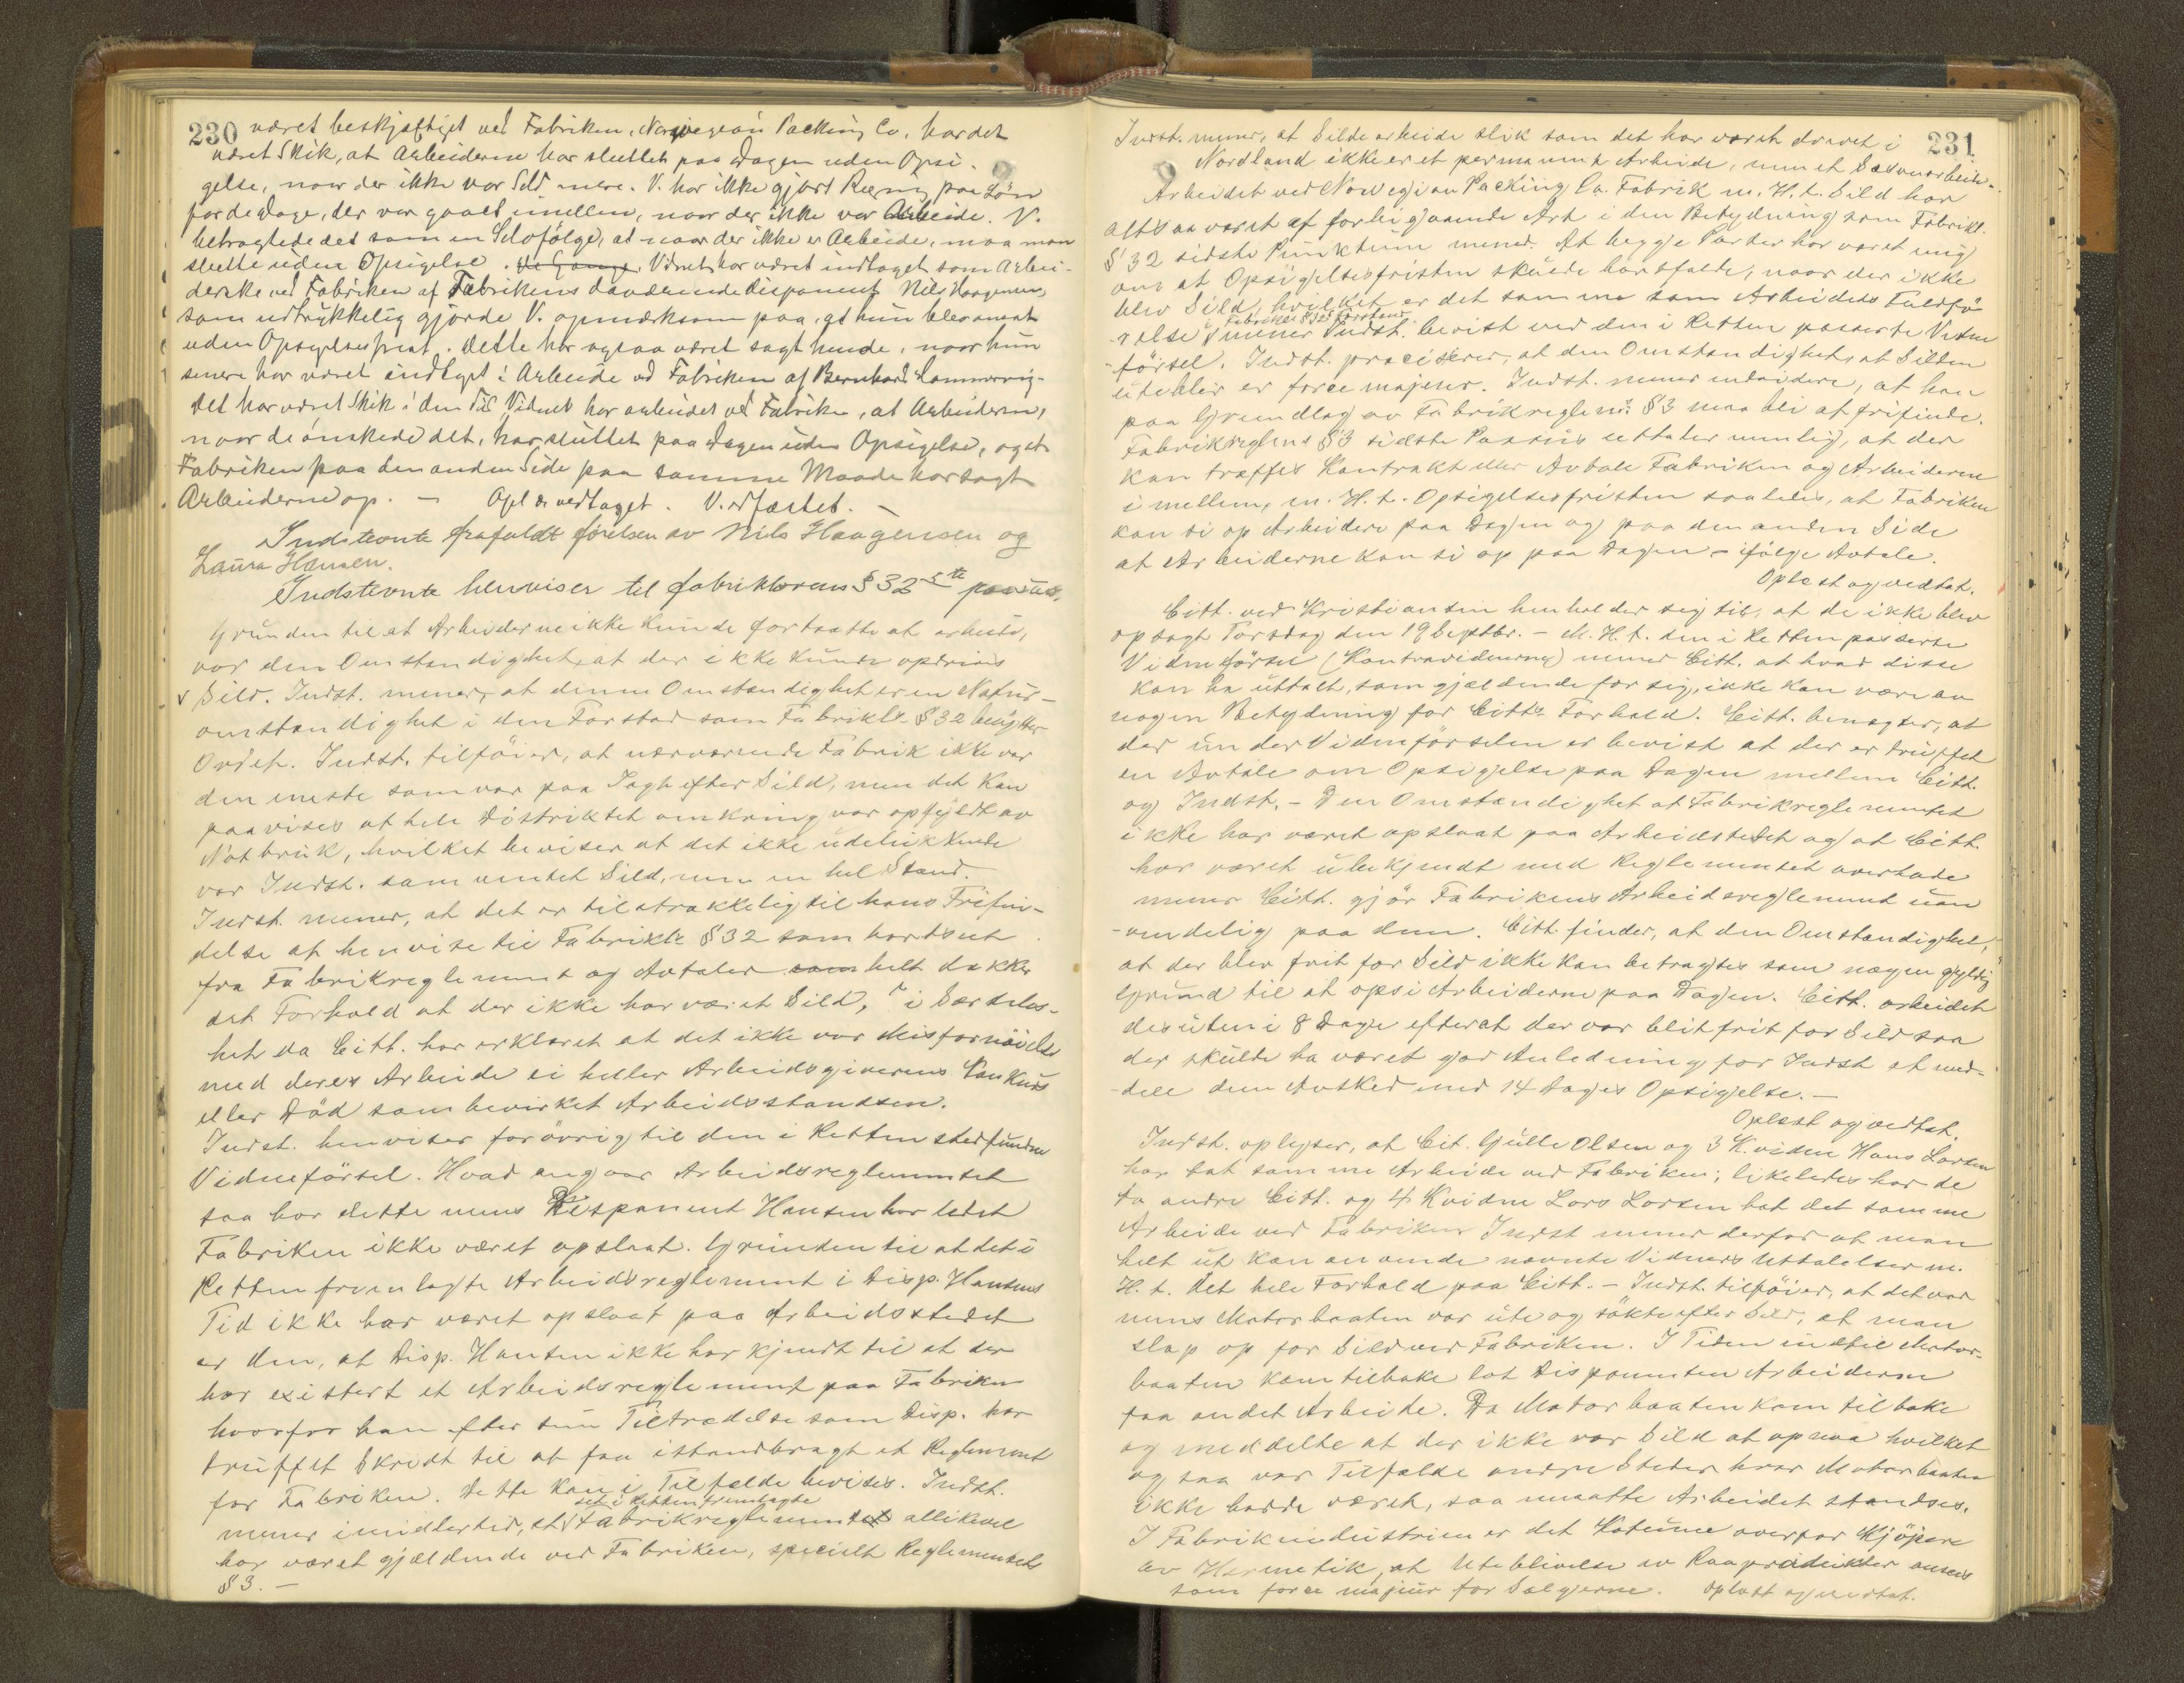 230 været beskjæftiget ved Fabriken, Norwegian Packing Co, har det
været Skik, at Arbeiderne har sluttet paa Dagen uden Opsi-
gelse, naar der ikke var Sild mere. V. har ikke gjort Regning paa Løn
for de Dage, der var gaaet imellem, naar der ikke var Arbeide. V.
betragtede det som en Selvfølge, at naar der ikke er Arbeide, maa man
slutte uden Opsigelse. Vidnet har været indtaget som Arbei-
derske ved Fabriken af Fabrikens daværende Disponent Nils Haagensen,
som udtrykkelig gjorde V. opmærksom paa, at hun blev ansat
uden Opsigelsesfrist. Dette har ogsaa været sagt hende, naar hun
senere har været indtaget i Arbeide ved Fabriken af Bernhard Hammervig.
Det har været Skik i den Tid Vidnet har arbeidet ved Fabriken, at Arbeiderne,
naar de ønskede det, har sluttet paa Dagen uden Opsigelse, og at
Fabriken paa den anden Side paa samme Maade har sagt
Arbeiderne op. – Opl. & vedtaget. V. edfæstet. –
Indstevnte frafaldt førelsen av Nils Haagensen og
Laura Hansen.
Indstevnte henviser til fabriklovens § 32 passus,
Grunden til at Arbeiderne ikke kunde fortsætte at arbeide,
var den Omstendighet, at der ikke kunde opdrives
Sild. Indst. mener, at denne Omstændighet er en Natur-
omstændighet i den Forstad som Fabrikl. § 32 benytter
Ordet. Indst. tilføier, at nærværende Fabrik ikke var
den eneste som var paa Jagt efter Sild, men det kan
paavises at hele Distriktet omkring var opfyldt av
Notbruk, hvilket beviser at det ikke udelukkende
var Indst. som ventet Sild, men en hel Stand.
Indst. mener, at det er tilstrækkelig til hans Frifin-
delse at henvise til Fabrikl. § 32 som bortset
fra Fabrikreglement og Avtaler helt dækker
det Forhold at der ikke har været Sild, i Særdeles-
het da Citt. har erklæret at det ikke var Misfornøielse
med deres Arbeide ei heller Arbeidsgiverens Konkurs
eller Død som bevirket Arbeidsstandsen.
Indst. henviser forøvrig til den i Retten stedfundne
Vidneførsel. Hvad angaar Arbeidsreglementet
saa har dette mens Disponent Hansen har ledet
Fabriken ikke været opslaat. Grunden til at det i
Retten fremlagte Arbeidsreglement i Disp. Hansens
Tid ikke har været opslaat paa Arbeidsstedet
er den, at Disp. Hansen ikke har kjendt til at der
har existert et Arbeidsreglement paa Fabriken
hvorfor han efter sin Tiltrædelse som Disp. har
truffet Skridt til at faa istandbragt et Reglement
for Fabriken. Dette kan i Tilfælde bevises. Indst.
det i Retten fremlagte
mener imidlertid, at Fabrikreglementet allikevel
har været gjældende ved Fabriken, specielt Reglementets
§ 3. –
231
Indst. mener, at Silde arbeide slik som det har været drevet i
Nordland ikke er et permanent Arbeide, men et Sæsonarbeide.
Arbeidet ved Norwegian Packing Co. Fabrik m. H. t. Sild har
altsaa været af forbigaaende Art i den Betydning som Fabrikl.
§ 32 sidste Punktum mener. At begge Parter har været enig
om at Opsigelsesfristen skulde bortfalde, naar der ikke
blev Sild, hvilket er det samme som Arbeidets Fuldfø-
relse mener Indst. bevist ved den i Retten passerte Vidne
førsel. Indst. præciserer, at den Omstændighet, at Silden
uteblir er force majeur. Indst. mener endvidere, at han
paa Grundlag av Fabrikreglem. § 3 maa bli at frifinde.
Fabrikreglens § 3 sidste Passus uttaler nemlig, at der
kan træffes Kontrakt eller Avtale Fabriken og Arbeiderne
imellem, m. H. t. Opsigelsesfristen saaledes, at Fabriken
kan si op Arbeidere paa Dagen og paa den anden Side
at Arbeiderne kan si op paa Dagen – ifølge Avtale.
Oplæst og vedtat.
Citt. ved Kristiansen henholder sig til, at de ikke blev
opsagt Torsdag den 19 Septbr. – M. H. t. den i Retten passerte
Vidneførsel (Kontravidnerne) mener Citt. at hvad disse
kan ha uttalt, som gjældende for sig, ikke kan være av
nogen Betydning for Citts Forhold. Citt. benægter, at
der under Vidneførselen er bevist at der er truffet
en Avtale om Opsigelse paa Dagen mellem Citt.
og Indst. – Den Omstændighet at Fabrikreglementet
ikke har været opslaat paa Arbeidsstedet og at Citt.
har været ubekjendt med Reglementet
mener Citt. gjør Fabrikens Arbeidsreglement uan-
vendelig paa dem. Citt. finder, at den Omstændighet,
at der blev frit for Sild ikke kan betragtes som nogen gyldig
Grund til at opsi Arbeiderne paa Dagen. Citt. arbeidet
desuten i 8 Dage efterat der var blit frit for Sild saa
der skulde ha været god Anledning for Indst. at med-
dele dem Avsked med 14 Dages Opsigelse. –
Oplæst og vedtat.
Indst. oplyser, at Cit. Gulle Olsen og 3 K.vidne Hans Larsen
har hat samme Arbeide ved Fabriken; likeledes har de
to andre Citt. og 4 Kvidne Lars Larsen hat det samme
Arbeide ved Fabriken Indst mener derfor at man
helt ut kan anvende nævnte Vidners Uttalelser m.
H. t. det hele Forhold paa Citt. – Indst. tilføier, at det var
mens Motorbaaten var ute og søkte efter Sild, at man
slap op for Sild ved Fabriken. I Tiden indtil Motor-
baaten kom tilbake lot Disponenten Arbeiderne
faa andet Arbeide. Da Motorbaaten kom tilbake
og meddelte at der ikke var Sild at opnaa hvilket
ogsaa var Tilfælde andre Steder hvor Motorbaaten
ikke hadde været, saa maatte Arbeidet standses.
I Fabrikindustrien er det Kutume overfor Kjøpere
av Hermetik, at Uteblivelse av Raaprodukter ansees
som force majeur for Sælgerne. Oplæst og vedtat.